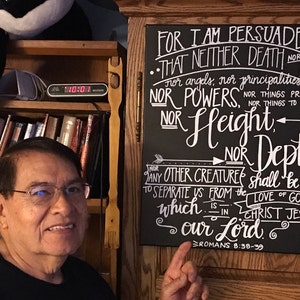 10:01
FOR I AM PERSUADE
THAT NEITHER DEATH NOR
nor angels, nor principalities
NOR POWERS, NOR THINGS PR
NOR THINGS TO
NOR Height,
NOR Dept
NOR ANY OTHER CREATURE shall be
TO SEPARATE US FROM the LOVE OF GO
which IS IN CHRIST JE
our Lord
ROMANS 8:38-39